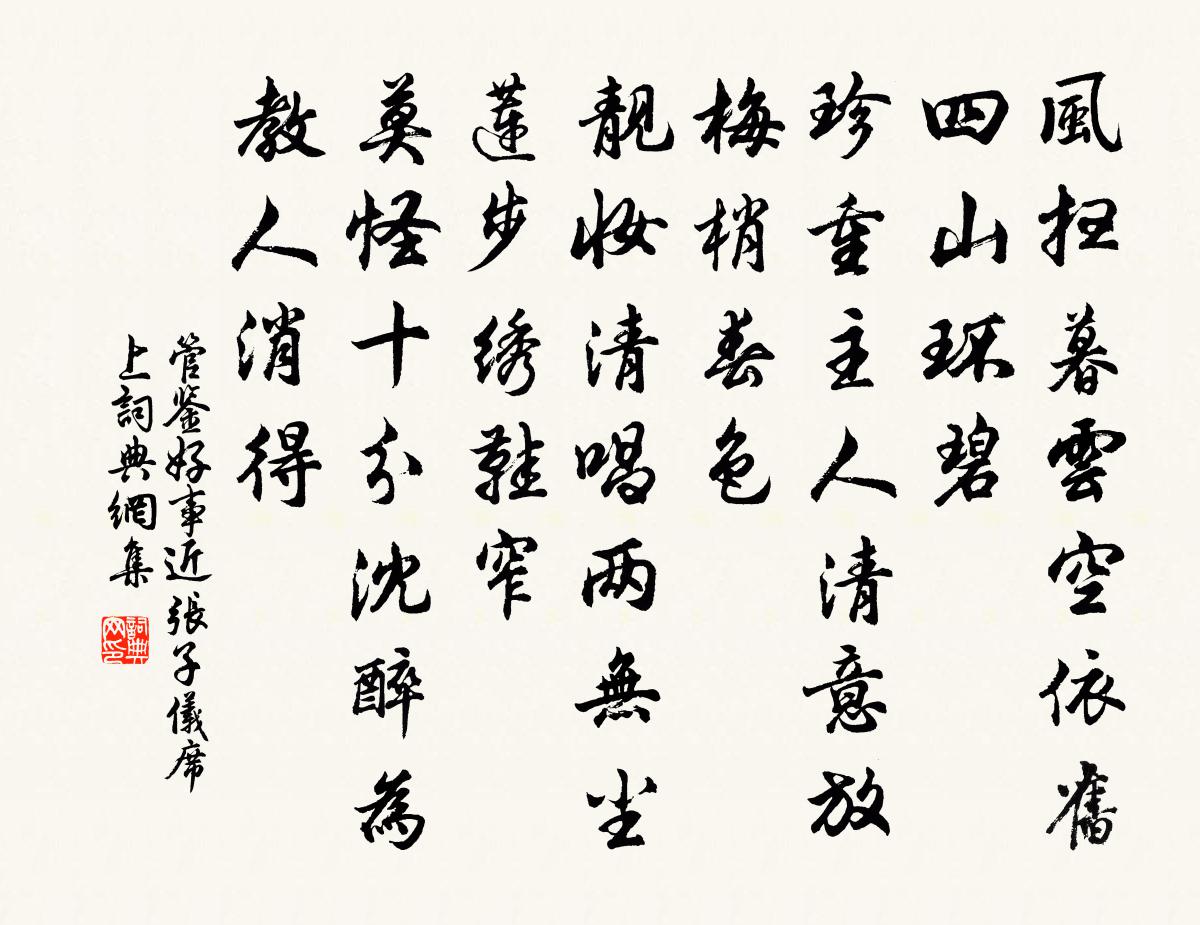 風扫暮雲空依舊
四山环碧
珍重主人清意放
梅梢春色
靚妆清唱两無尘
蓮步绣鞋窄
莫怪十分沈醉為
教人消得
管鉴好事近 張子儀席
上詞典網集
詞典网印